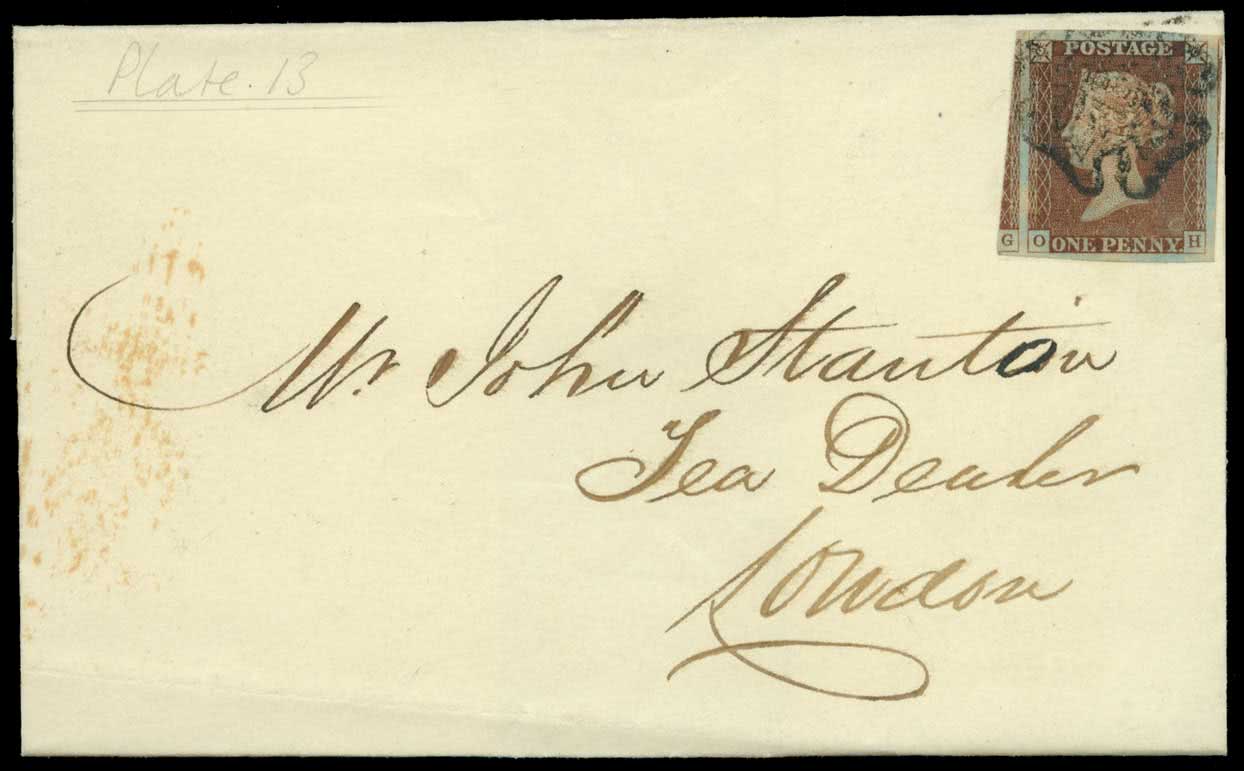 Plate. 13
POSTAGE
G O ONE PENNY. H
Mr John Stanton
Tea Dealer
London